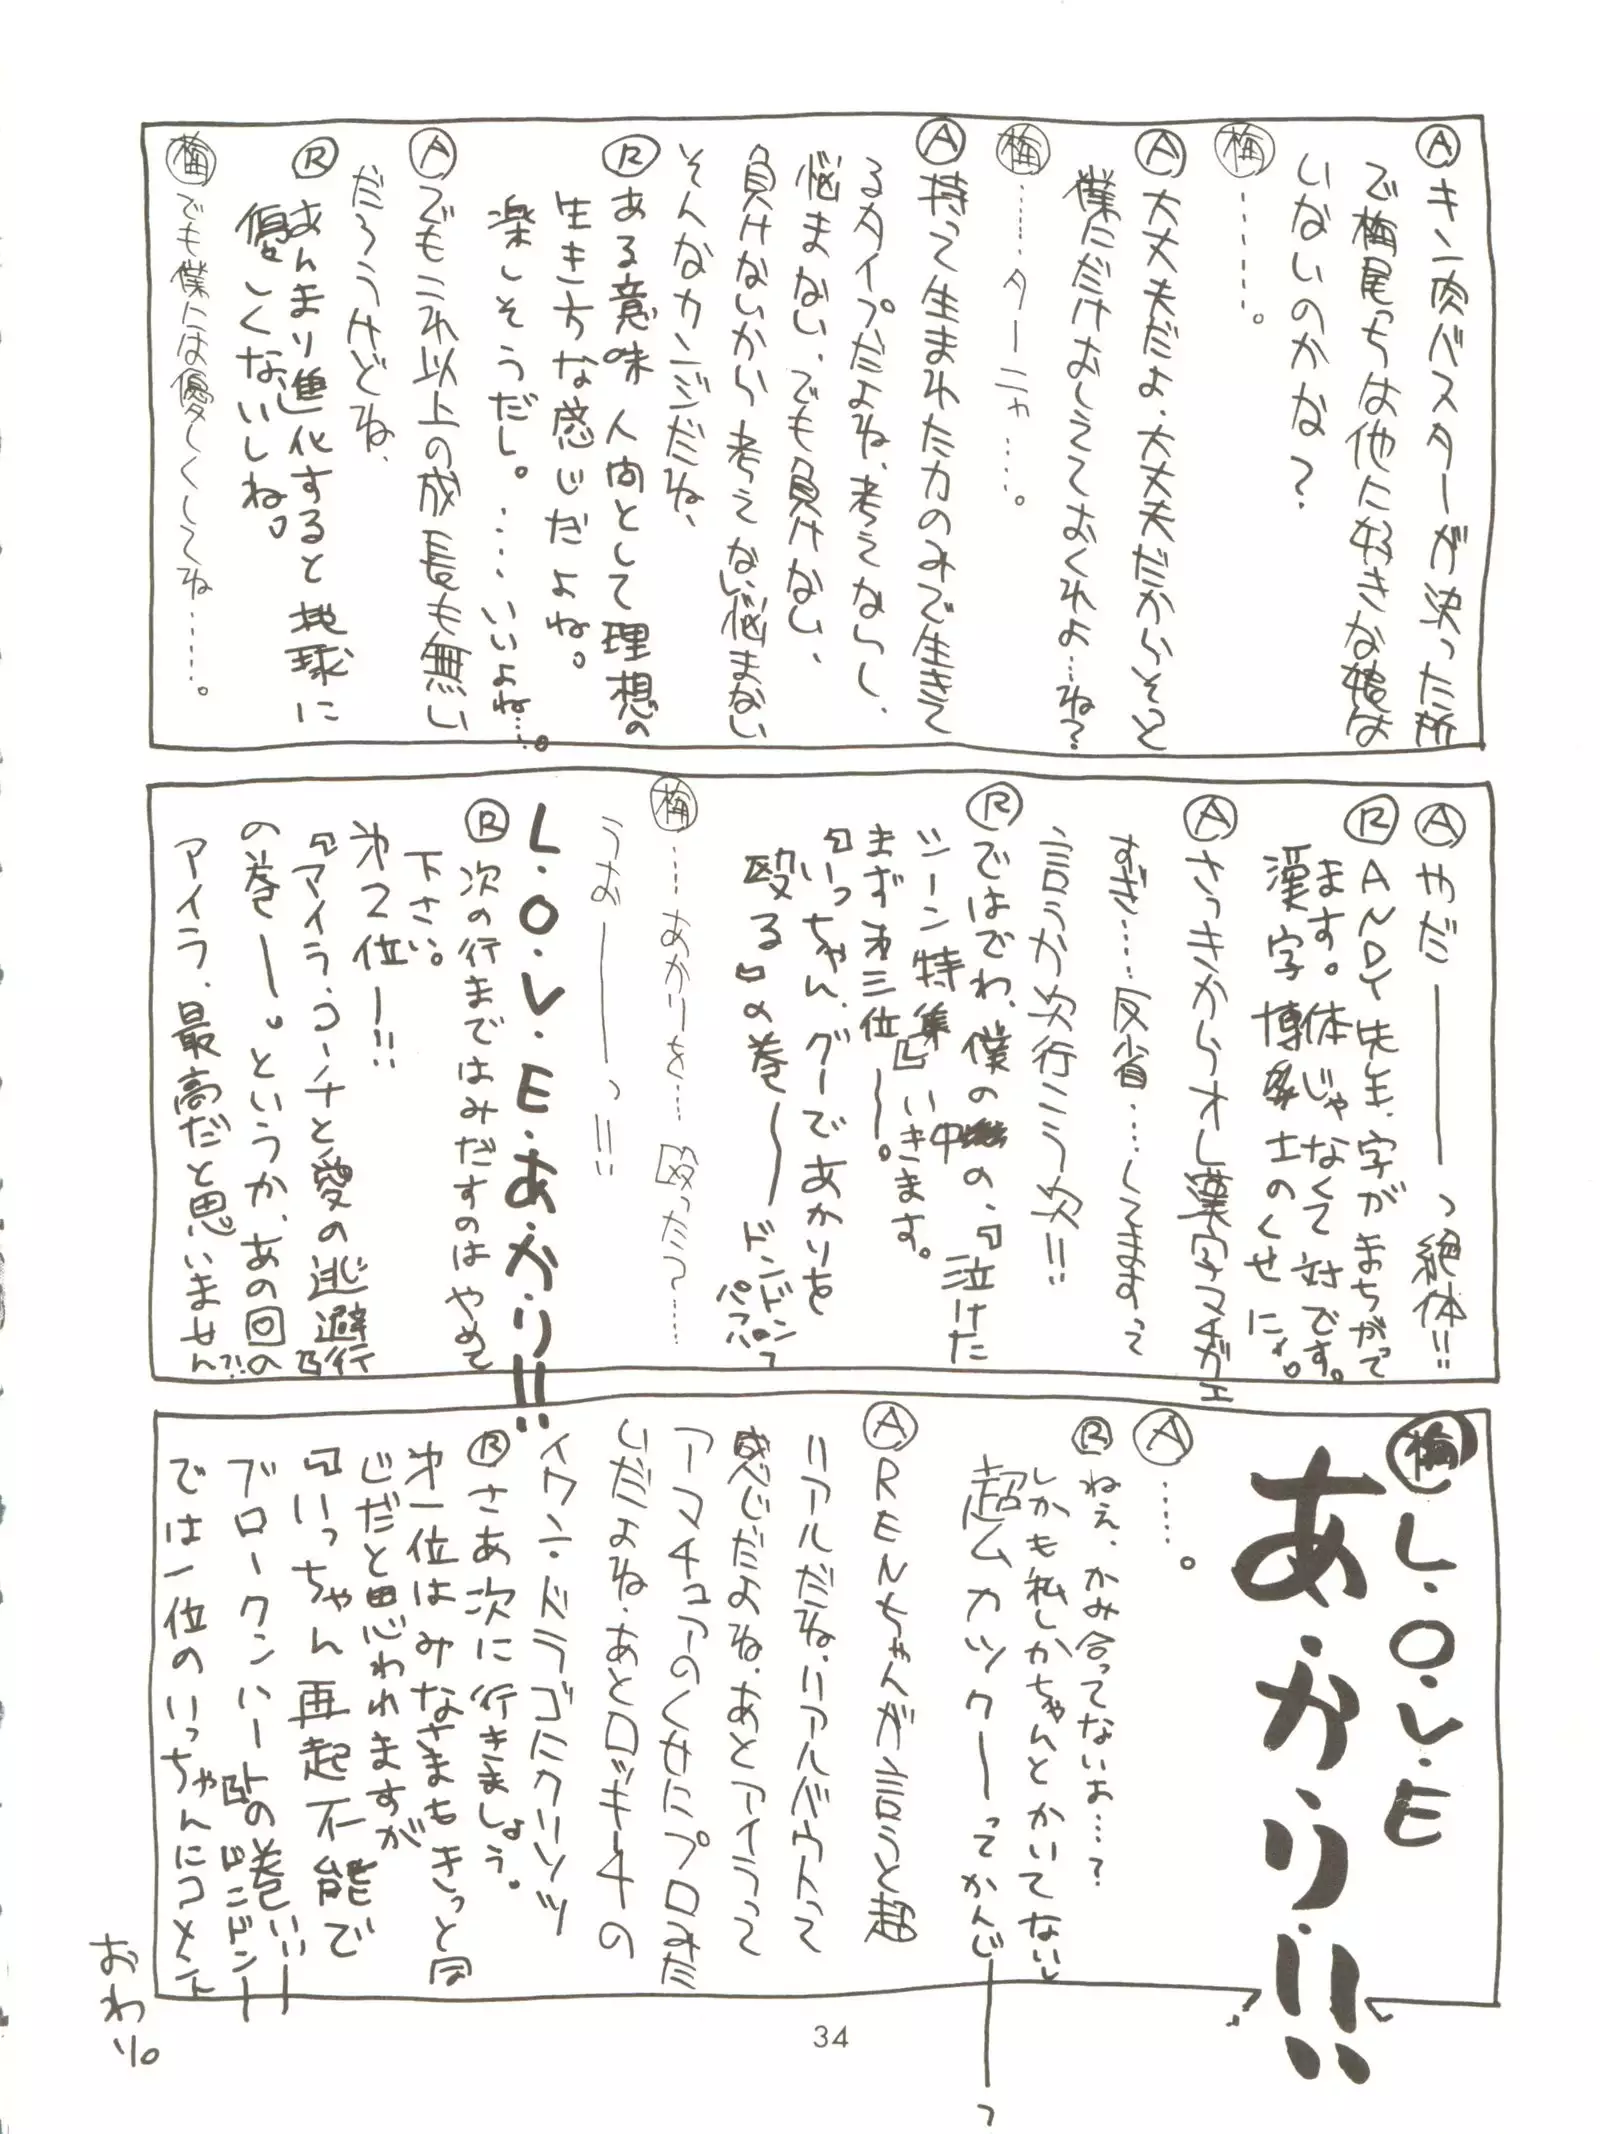 Ⓐキン肉バスターが決った所
で梅尾っちは他に好きな娘は
いないのかな？
㊍梅……。
Ⓐ大丈夫だよ、大丈夫だからそっと
僕にだけおしえておくれよ…ね？
梅……ターニャ……。
Ⓐ持って生まれた力のみで生きて
るタイプだよね、考えないし、
悩まない、でも負けない、
負けないから考えない悩まない
そんなカンジだね、
Ⓡある意味人間として理想の
生き方な感じだよね。
楽しそうだし。……いいよね…。
Ⓐでもこれ以上の成長も無い
だろうけどね、
Ⓡあんまり進化すると地球に
優しくないしね。
梅でも僕には優しくしてね……。
Ⓐやだ―――っ絶体!!
ⓇANDY先生、字がまちがって
ます。体じゃなくて対です。
漢字博士のくせに。
Ⓐさっきからオレ漢字マチガエ
すぎ…反省…してますって
言うか次行こう次!!
Ⓡではでわ、僕の中の、『泣けた
シーン特集』いきます。
まず第三位―。
『いっちゃん、グーであかりを
殴る』の巻――ドンドンパフパフっ
梅……あかりを…殴った〜……
うお―――っ!!
L・O・V・E・あ・か・り!!
Ⓡ次の行まではみだすのはやめて
下さい。
第2位―!!
『アイラ、コーチと愛の逃避行』
の巻―。というか、あの回の
アイラ、最高だと思いません?!
梅L・O・V・E
あ・か・り・!!
Ⓐ……。
Ⓡねえ、かみ合ってないよ…？
しかも私しかちゃんとかいてないし
超ムカツク――ってかんじ――っ
ⒶRENちゃんが言うと超
リアルだね、リアルバウトって
感じだよね、あとアイラって
アマチュアのくせにプロみた
いだよね、あとロッキー4の
イワン・ドラゴにクリソツ
Ⓡさあ次に行きましょう。
第一位はみなさまもきっと同
じだと思われますが
『いっちゃん再起不能で
ブロークンハート』の巻ぃ!!――
ドンドン――
では一位のいっちゃんにコメント
おわり。
34